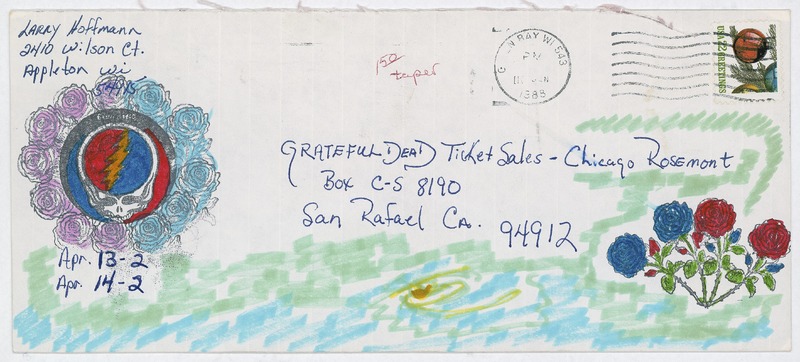 Larry Hoffmann
2410 Wilson Ct.
Appleton Wi
54915
150
taper
GREEN BAY WI 543
PM
JAN
1988
USA 22 GREETINGS
GRATEFUL DEAD Ticket Sales - Chicago Rosemont
Box C-S 8190
San Rafael Ca.
94912
Apr. 13-2
Apr. 14-2